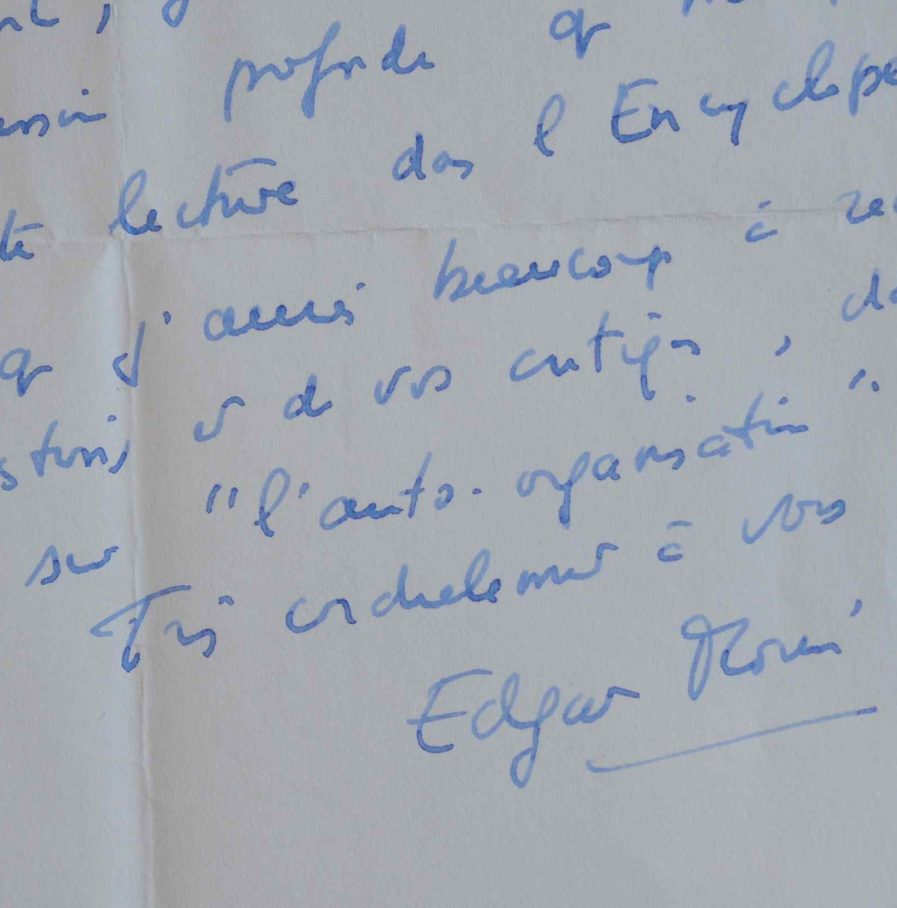 profonde q
lecture dans l'Encyclopé
q j'aurai beaucoup à
et de vos critiques,
sur "l'auto-organisation".
Très cordialement à vous
Edgar Morin